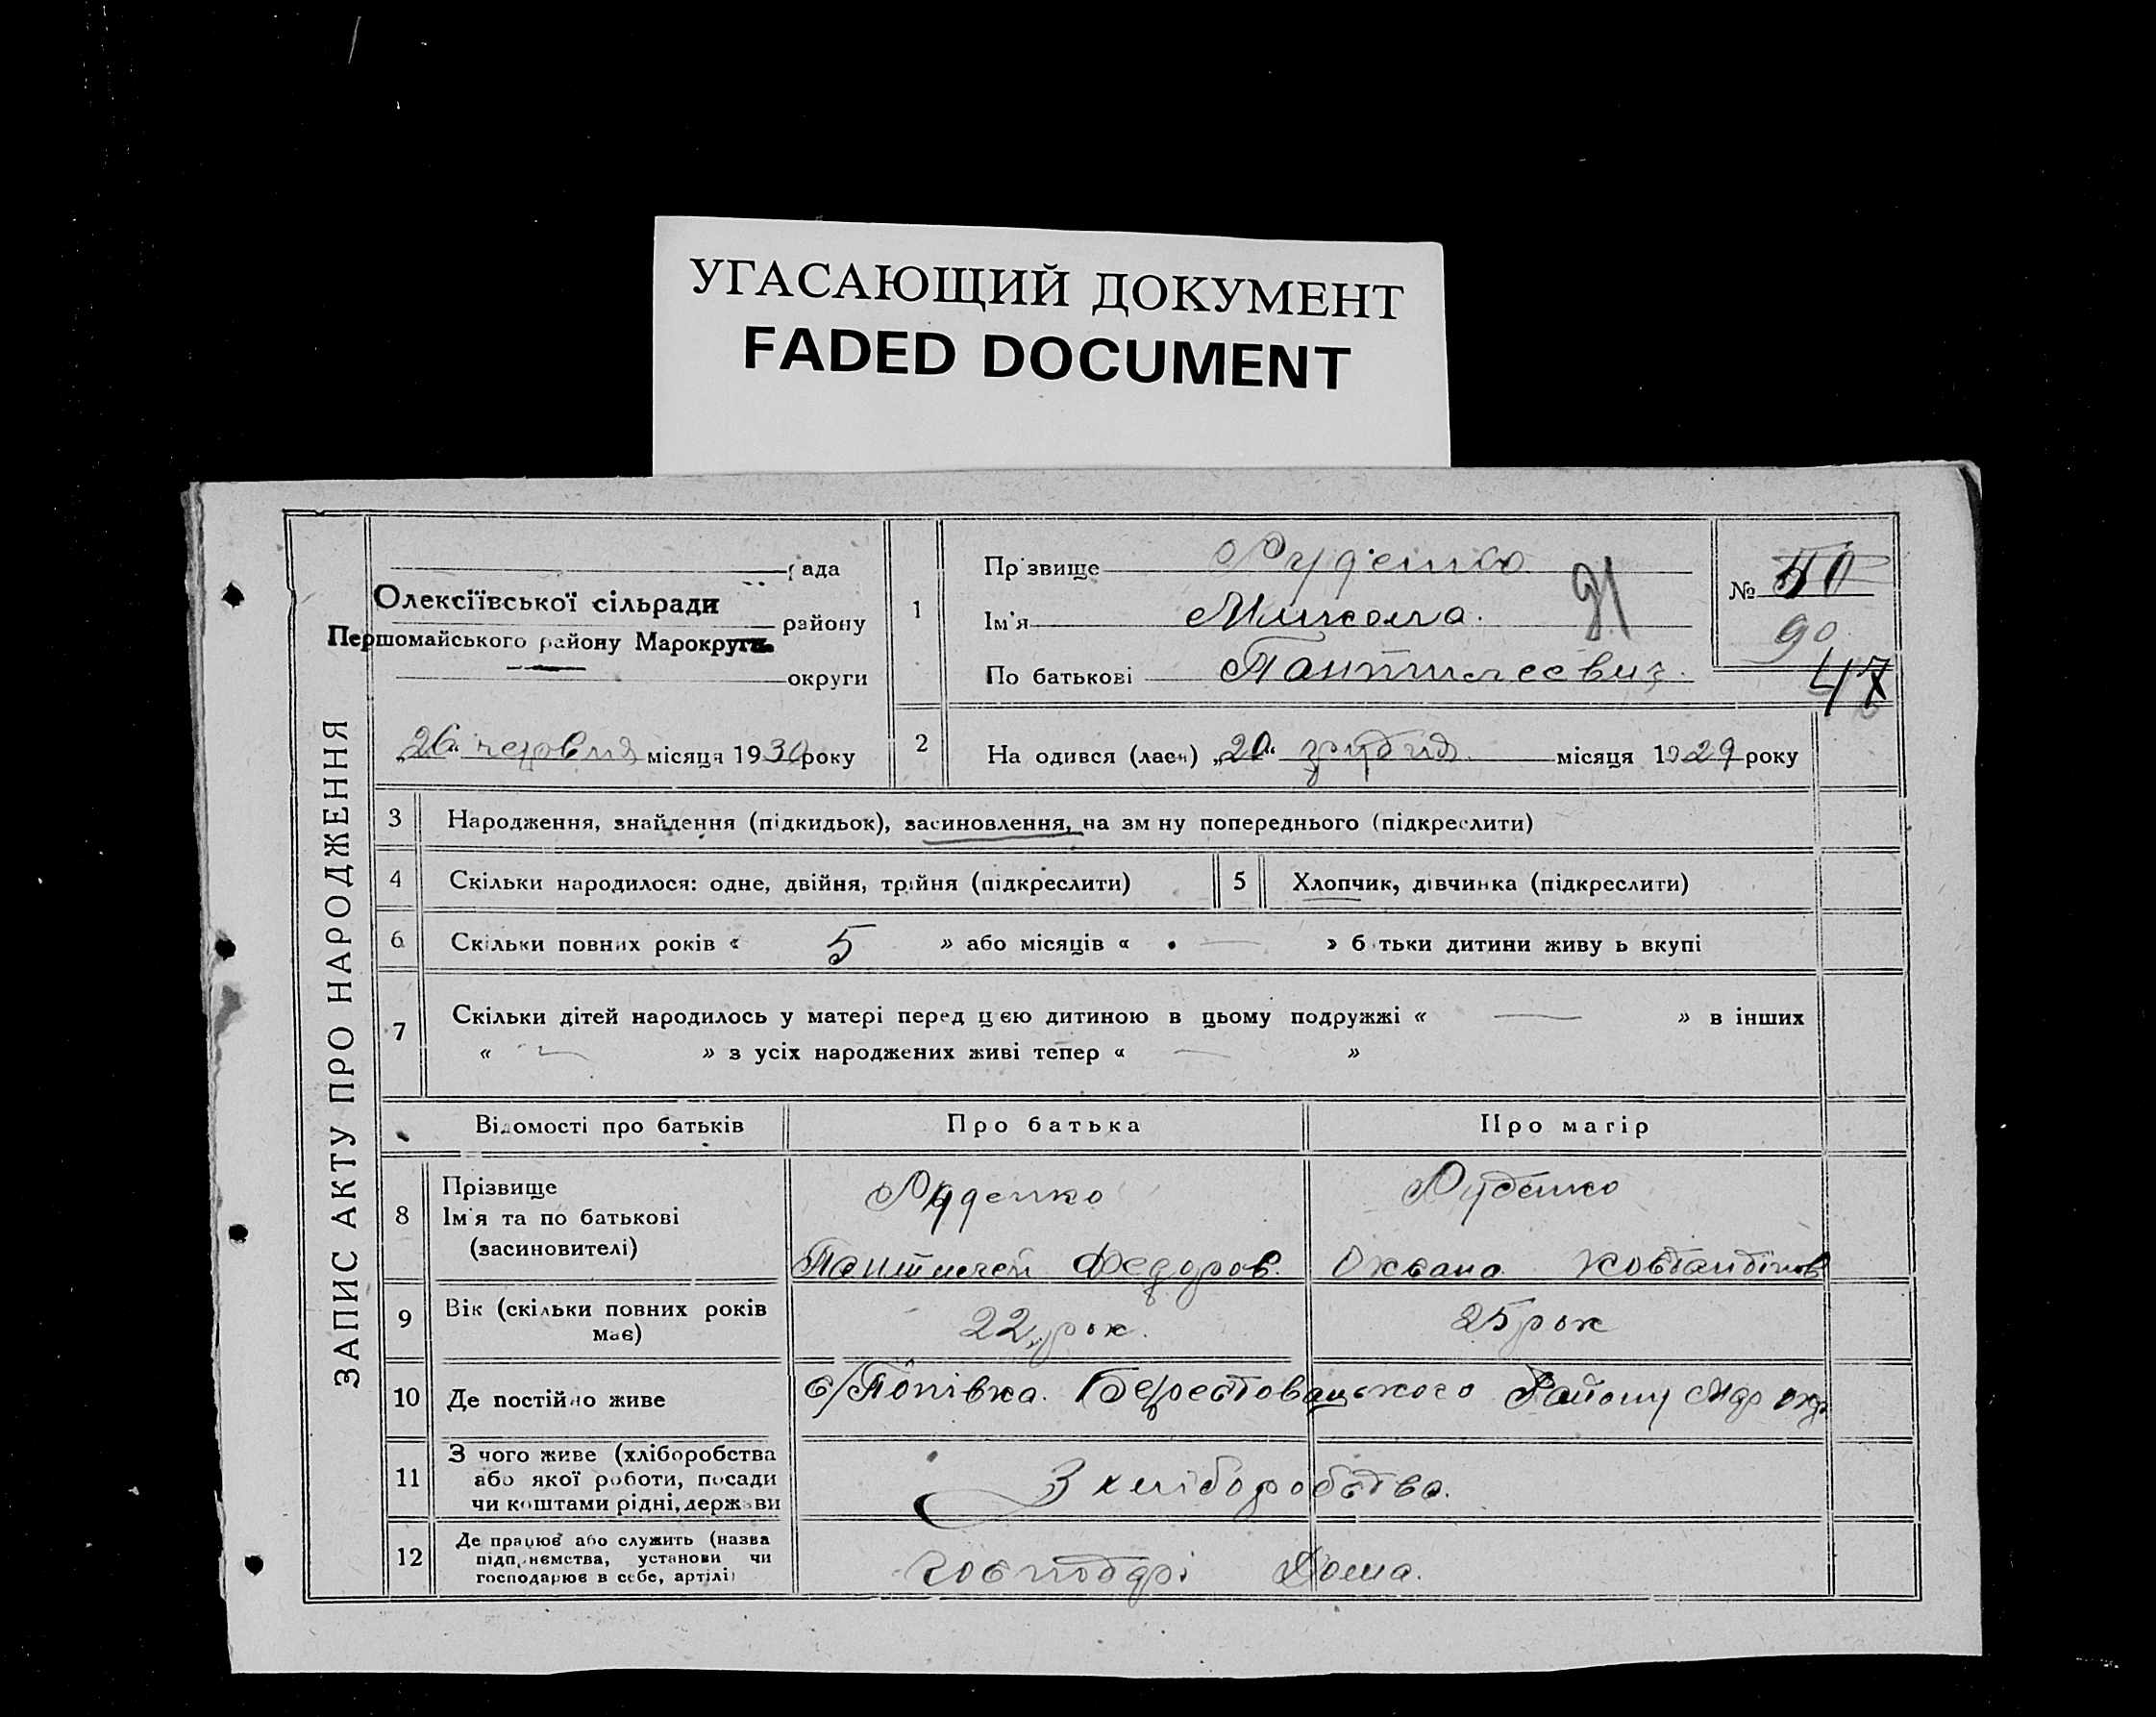 УГАСАЮЩИЙ ДОКУМЕНТ
FADED DOCUMENT
ЗАПИС АКТУ ПРО НАРОДЖЕННЯ
рада
Олексіївської сільради
району
Першомайського району Марокруги
округи
„26“ червня місяця 1930 року
1
Прізвище Руденко
Ім'я Микола.
По батькові Пантилеєвич.
91
№ 50
90
47
2
На одився (лася) „20“ грудня місяця 1929 року
3 Народження, знайдення (підкидьок), засиновлення, на зм ну попереднього (підкреслити)
4 Скільки народилося: одне, двійня, трійня (підкреслити)
5 Хлопчик, дівчинка (підкреслити)
6 Скільки повних років « 5 » або місяців « — » б тьки дитини живу ь вкупі
7 Скільки дітей народилось у матері перед цією дитиною в цьому подружжі « — » в інших
« — » з усіх народжених живі тепер « — »
Відомості про батьків Про батька Про матір
8 Прізвище Руденко Руденко
Ім'я та по батькові
(засиновителі) Пантилей Федоров. Оксана Костантінов
9 Вік (скільки повних років має) 22 рок. 25 рок
10 Де постійно живе с/Попівка. Берестовацького Району Мар окр
11 З чого живе (хліборобства
або якої роботи, посади
чи коштами рідні, держави
З хліборобства.
12 Де працює або служить (назва
підприємства, установи чи
господарює в себе, артілі)
Дома.